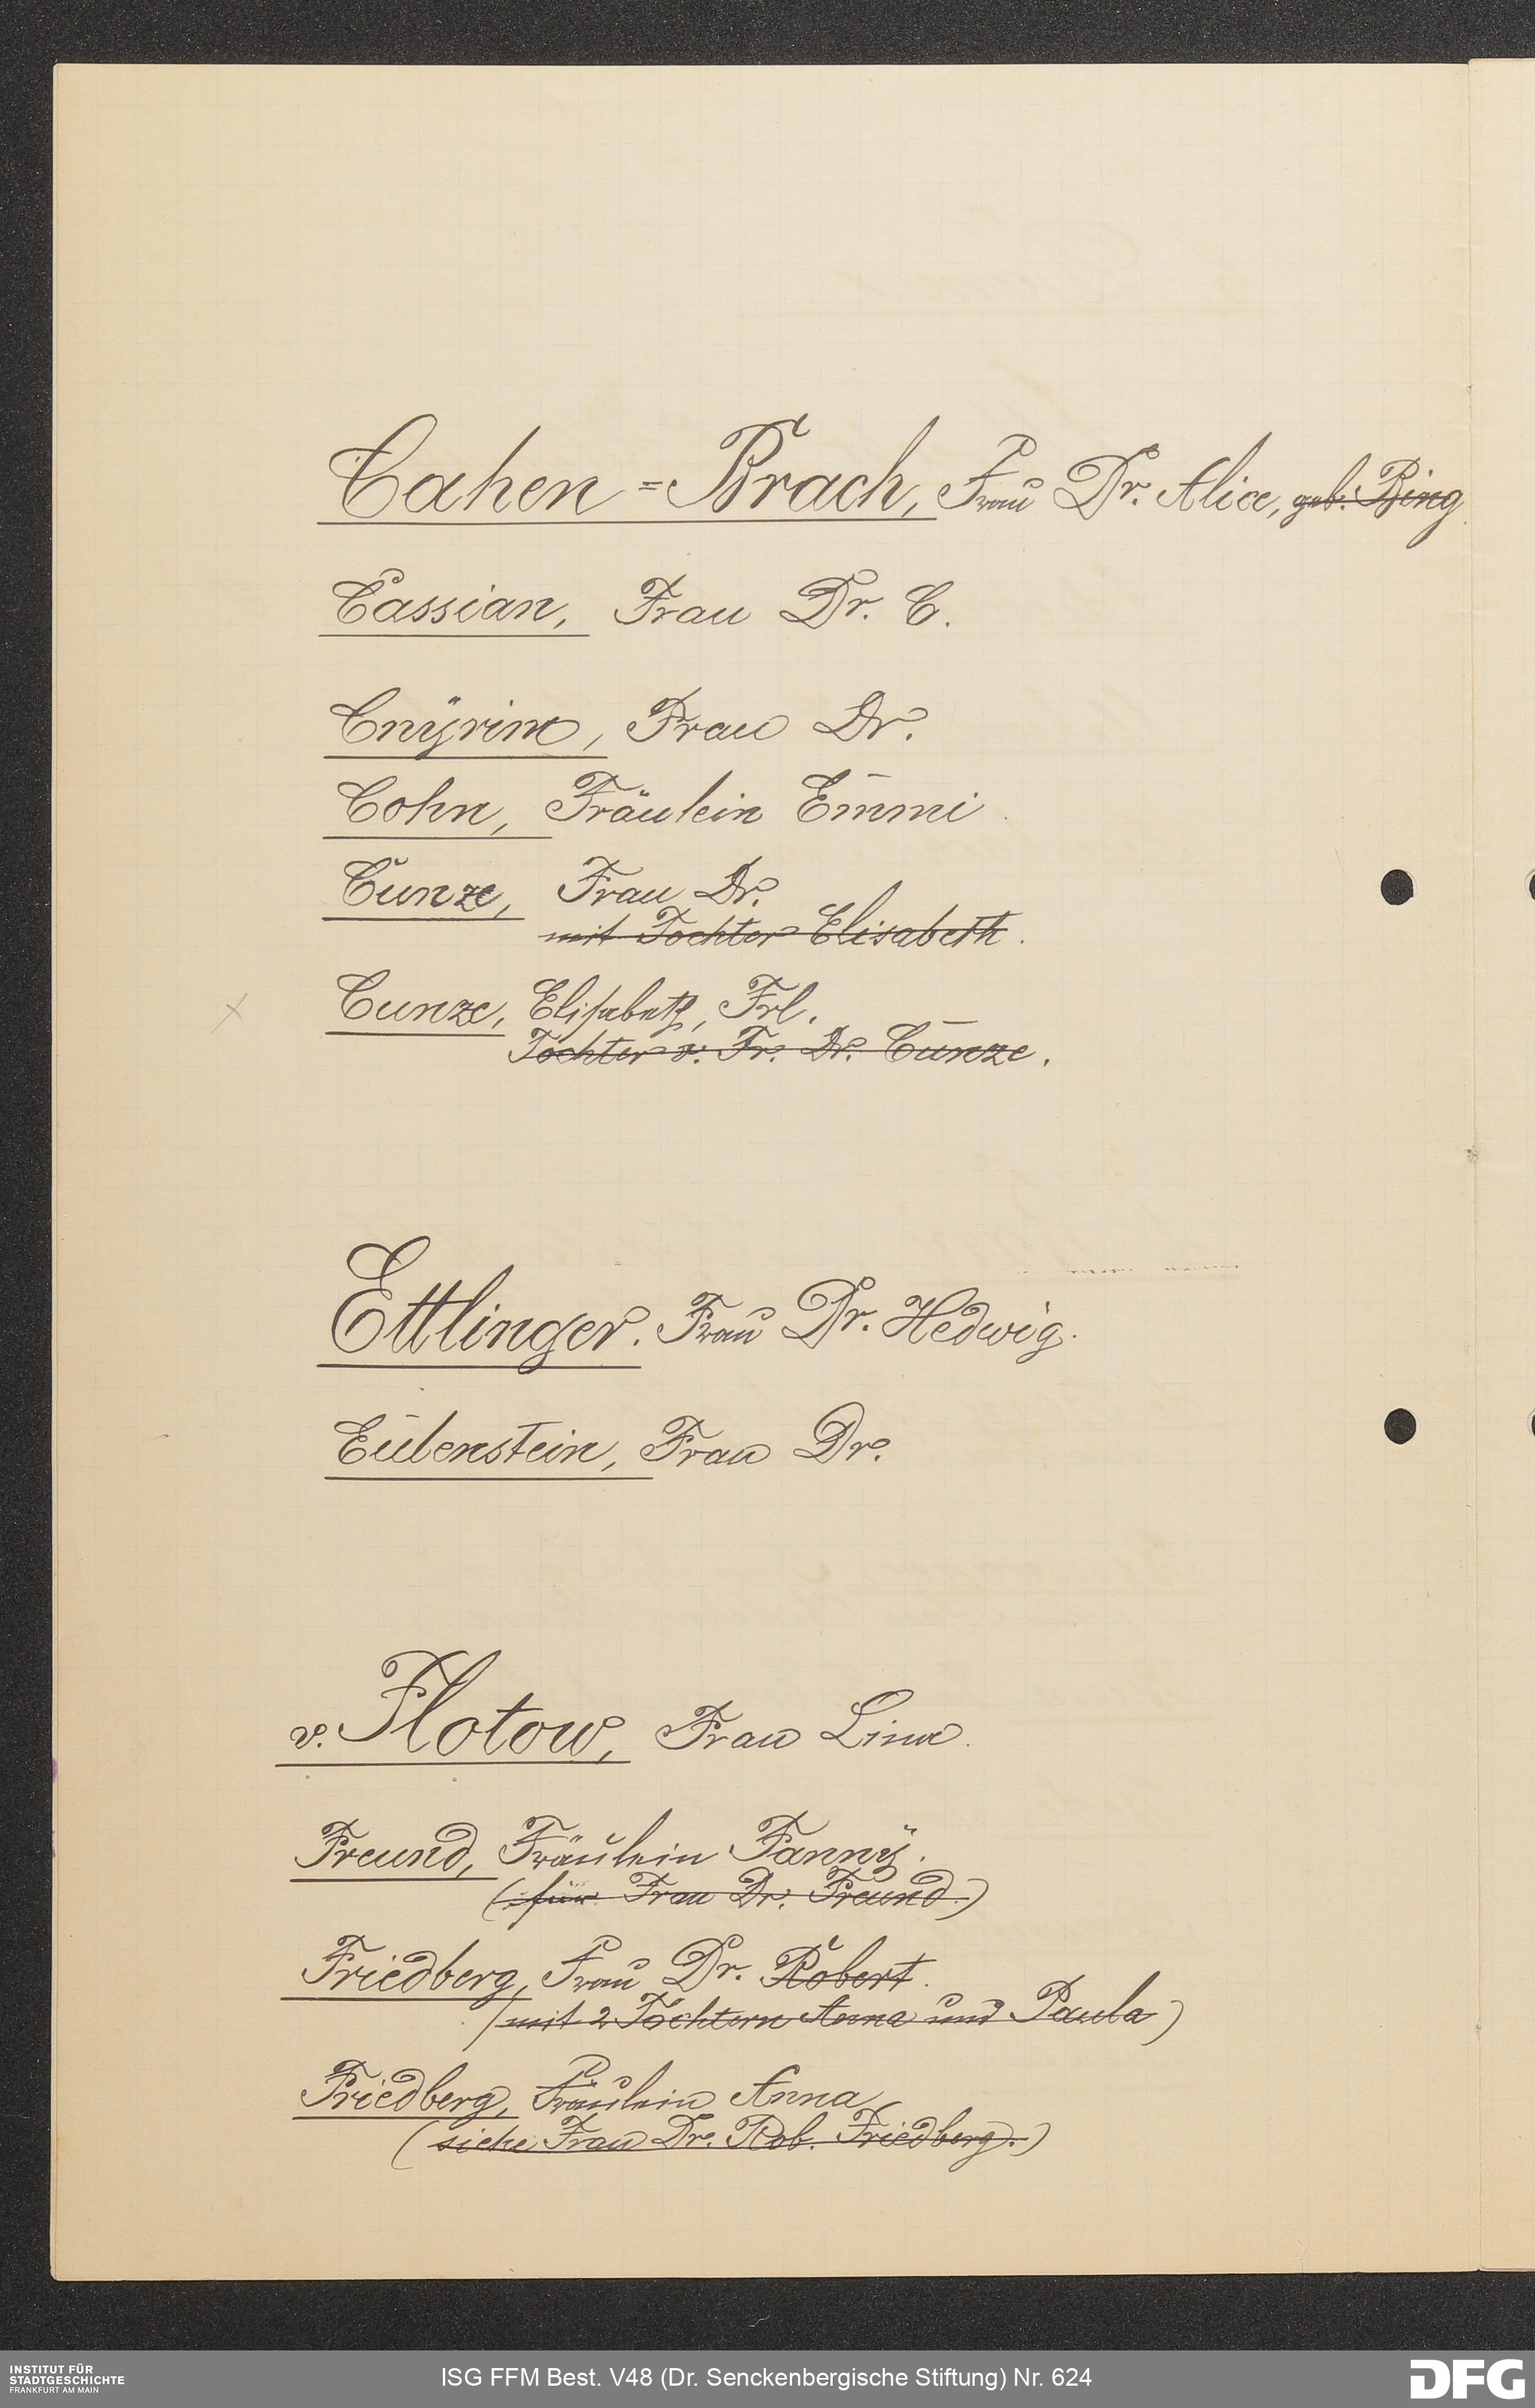 Cahen=Brach, Frau Dr. Alice, geb. Bing
Cassian, Frau Dr. C.
Cnÿrim, Frau Dr.
Cohn, Fräulein Em̄mi
Cunze, Frau Dr.
mit Tochter Elisabeth.
Cunze, Elisabeth, Frl.
Tochter v. Fr. Dr. Cunze.
Ettlinger. Frau Dr. Hedwig.
Eulenstein, Frau Dr.
v. Flotow, Frau Lina.
Freund, Fräulein Fannÿ.
(für Frau Dr. Freund.)
Friedberg, Frau Dr. Robert.
(mit 2 Töchtern Anna und Paula)
Friedberg, Fräulein Anna
(siehe Frau Dr. Rob. Friedberg.)
INSTITUT FÜR
STADTGESCHICHTE
FRANKFURT AM MAIN
ISG FFM Best. V48 (Dr. Senckenbergische Stiftung) Nr. 624
DFG